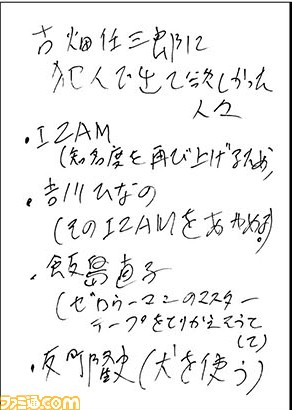 古畑任三郎に
犯人で出て欲しかった
人々
・IZAM
(知名度を再び上げるため)
・吉川ひなの
(そのIZAMをあやめる。)
・飯島直子
(ゼロウーマンのマスター
テープをとりかえそうと
(て)
・反町隆史(犬を使う)
ファミ通.com